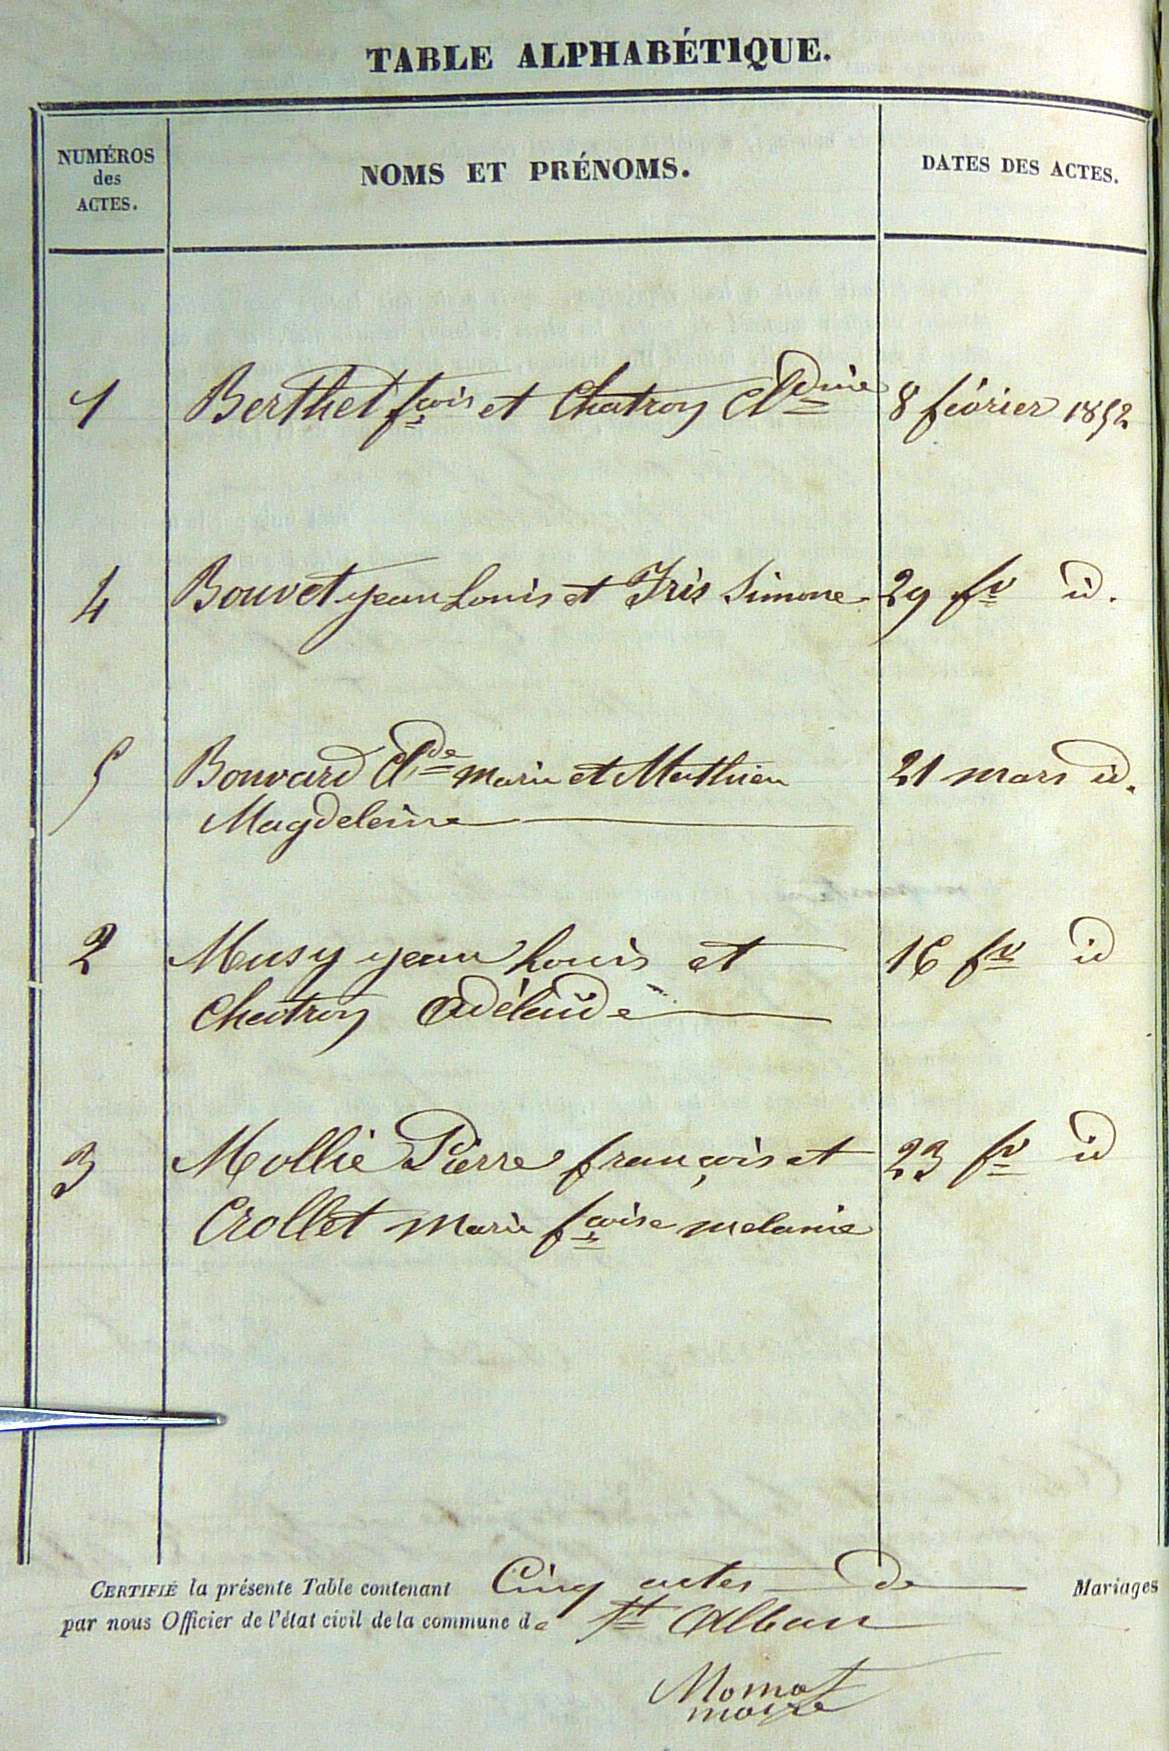 TABLE ALPHABÉTIQUE.
NUMÉROS des ACTES. NOMS ET PRÉNOMS. DATES DES ACTES.
1 Berthet fçois et Chatron Cldine 8 février 1852
4 Bouvet jean Louis et Iris Simone 29 fr id.
5 Bouvard Clde marie et Mathieu 21 mars id.
Magdeleine
2 Musy jean Louis et 16 fr id
Chatron Adélaïde
3 Mollie Pierre françois et 23 fr id
Crollet marie fçoise melanie
CERTIFIÉ la présente Table contenant Cinq actes de Mariages
par nous Officier de l'état civil de la commune de St Alban
Momot
maire